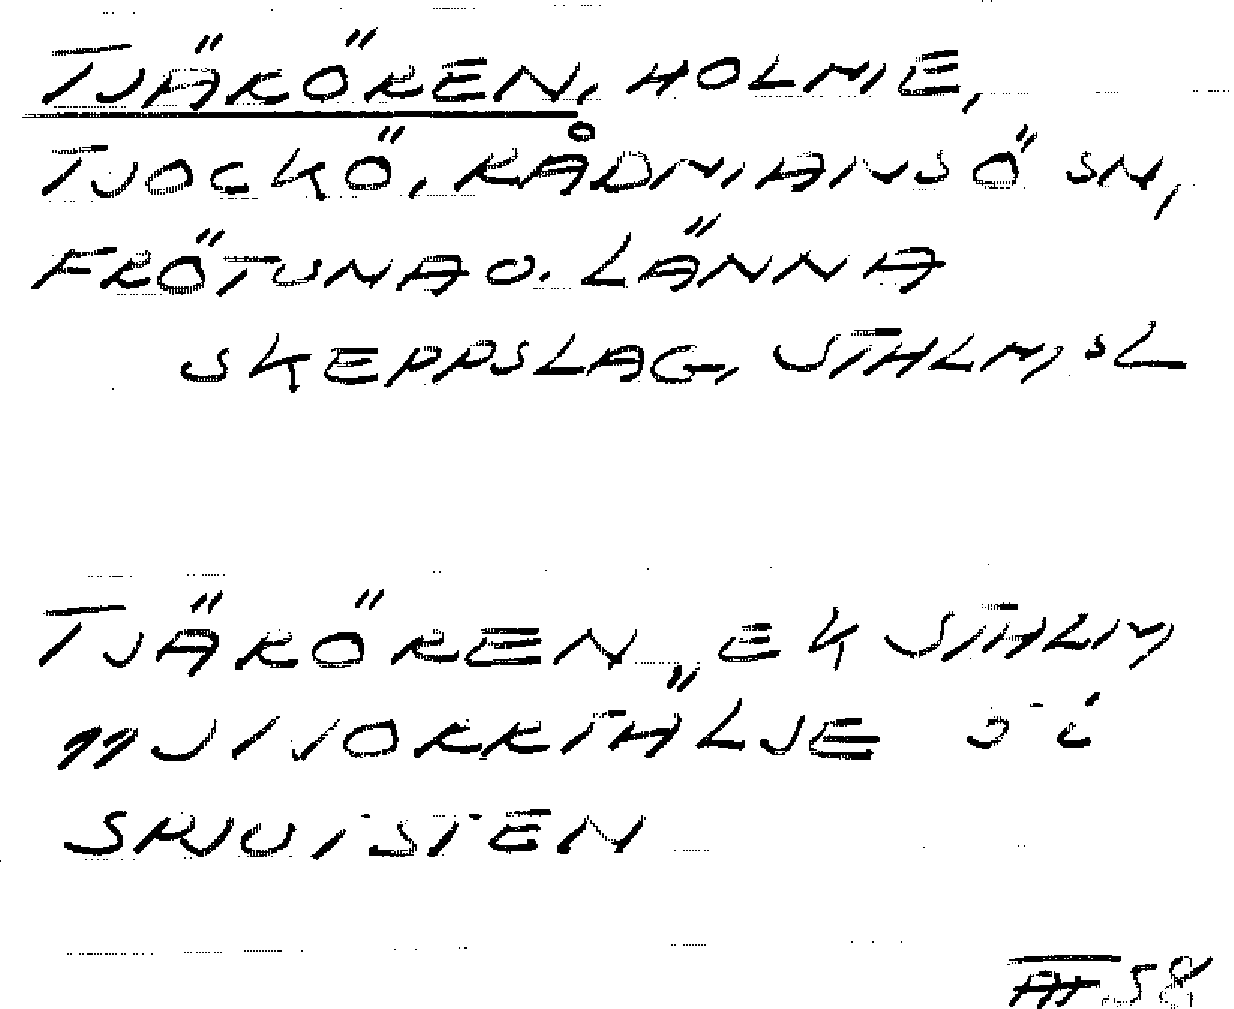 TJÄRÖREN, HOLME,
TJOCKÖ, RÅDMANSÖ SN,
FRÖTUNA O. LÄNNA
SKEPPSLAG, STHLMS L
TJÄRÖREN, EK STHLM
11 SV NORRTÄLJE